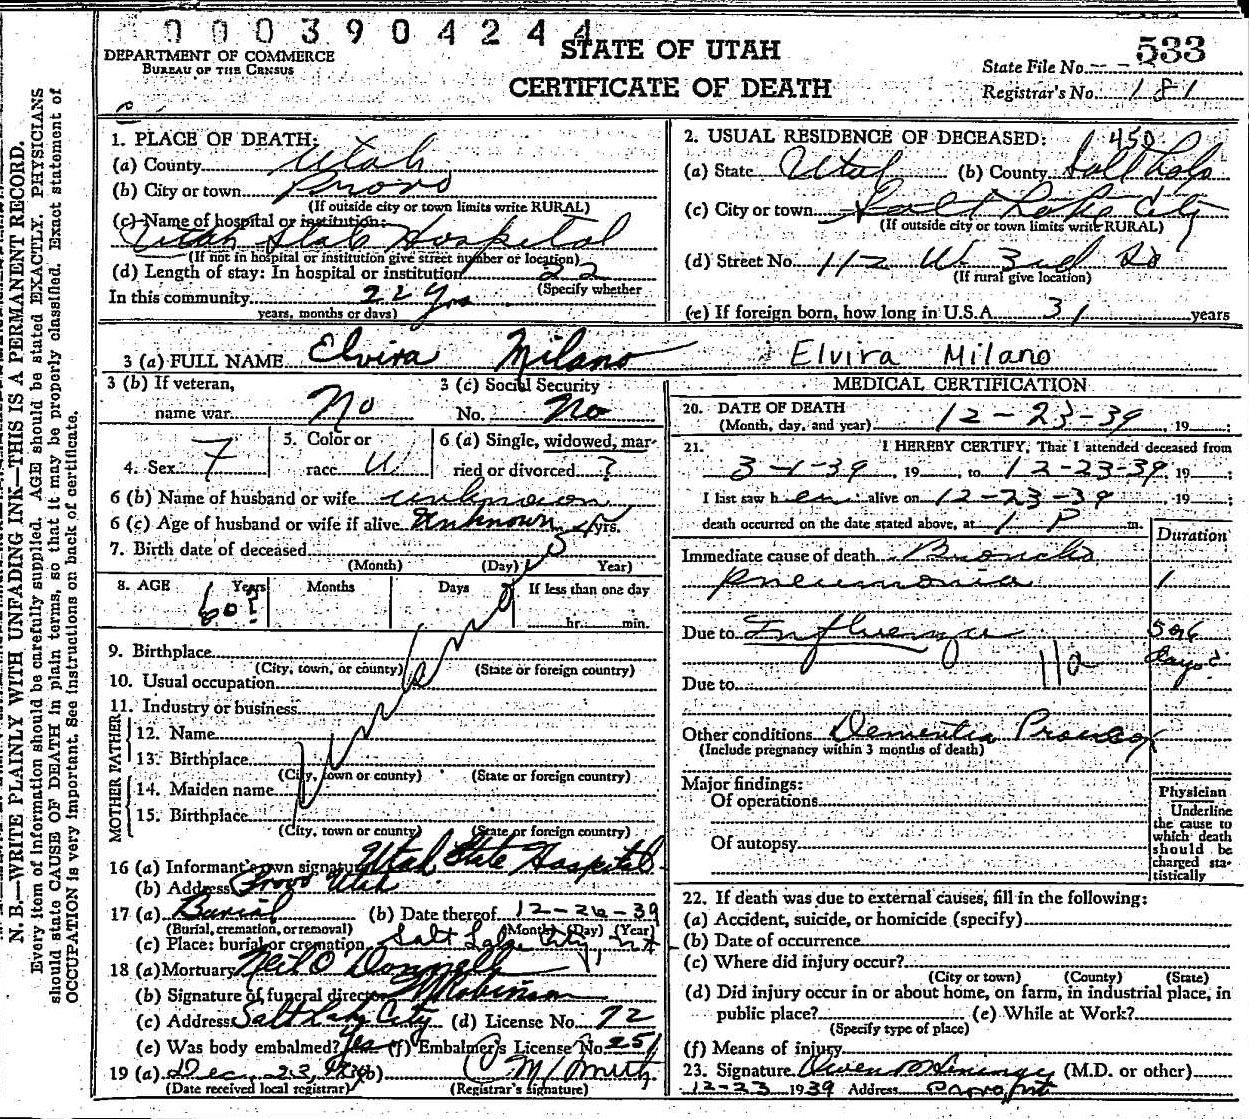 0003904244
DEPARTMENT OF COMMERCE
BUREAU OF THE CENSUS
STATE OF UTAH
CERTIFICATE OF DEATH
State File No. 533
Registrar's No. 181
N. B.—WRITE PLAINLY WITH UNFADING INK—THIS IS A PERMANENT RECORD.
Every item of information should be carefully supplied. AGE should be stated EXACTLY. PHYSICIANS
should state CAUSE OF DEATH in plain terms, so that it may be properly classified. Exact statement of
OCCUPATION is very important. See instructions on back of certificate.
1. PLACE OF DEATH:
(a) County Utah
(b) City or town Provo
(If outside city or town limits write RURAL)
(c) Name of hospital or institution:
Utah State Hospital
(If not in hospital or institution give street number or location)
(d) Length of stay: In hospital or institution 22
(Specify whether
In this community 22 Yrs
years, months or days)
2. USUAL RESIDENCE OF DECEASED: 450
(a) State Utah (b) County Salt Lake
(c) City or town Salt Lake City
(If outside city or town limits write RURAL)
(d) Street No. 112 W 3rd So
(If rural give location)
(e) If foreign born, how long in U.S.A. 31 years
3 (a) FULL NAME Elvira Milano Elvira Milano
3 (b) If veteran,
name war No
3 (c) Social Security
No. No
4. Sex F
5. Color or
race W
6 (a) Single, widowed, mar-
ried or divorced ?
6 (b) Name of husband or wife unknown
6 (c) Age of husband or wife if alive Unknown yrs.
7. Birth date of deceased
(Month) (Day) Year)
8. AGE Years Months Days If less than one day
60? hr. min.
9. Birthplace
(City, town, or county) (State or foreign country)
10. Usual occupation
11. Industry or business
Unknown
FATHER
12. Name
13. Birthplace
(City, town or county) (State or foreign country)
MOTHER
14. Maiden name
15. Birthplace
(City, town or county) (State or foreign country)
16 (a) Informant's own signature Utah State Hospital
(b) Address Provo Utah
17 (a) Burial (b) Date thereof 12-26-39
(Burial, cremation, or removal) (Month) (Day) (Year)
(c) Place: burial or cremation Salt Lake City, Ut
18 (a) Mortuary Neil O'Donnell
(b) Signature of funeral director M Robinson
(c) Address Salt Lake City (d) License No. 72
(e) Was body embalmed? Yes (f) Embalmer's License No. 251
19 (a) Dec. 23, (b) M Smith
(Date received local registrar) (Registrar's signature)
MEDICAL CERTIFICATION
20. DATE OF DEATH
(Month, day, and year) 12-23-39, 19 ;
21. I HEREBY CERTIFY, That I attended deceased from
3-1-39 19 to 12-23-39, 19 ;
I last saw her alive on 12-23-39, 19 ;
death occurred on the date stated above, at 1 P m.
Duration
Immediate cause of death Broncho
Pneumonia 1
Due to Influenza 5 or 6
days?
11a
Due to
Other conditions Dementia Praecox
(Include pregnancy within 3 months of death)
Major findings:
Of operations
Of autopsy
Physician
Underline
the cause to
which death
should be
charged sta-
tistically
22. If death was due to external causes, fill in the following:
(a) Accident, suicide, or homicide (specify)
(b) Date of occurrence
(c) Where did injury occur?
(City or town) (County) (State)
(d) Did injury occur in or about home, on farm, in industrial place, in
public place? (e) While at Work?
(Specify type of place)
(f) Means of injury
23. Signature Owen P Heninger (M.D. or other)
12-23 1939 Address Provo, Ut